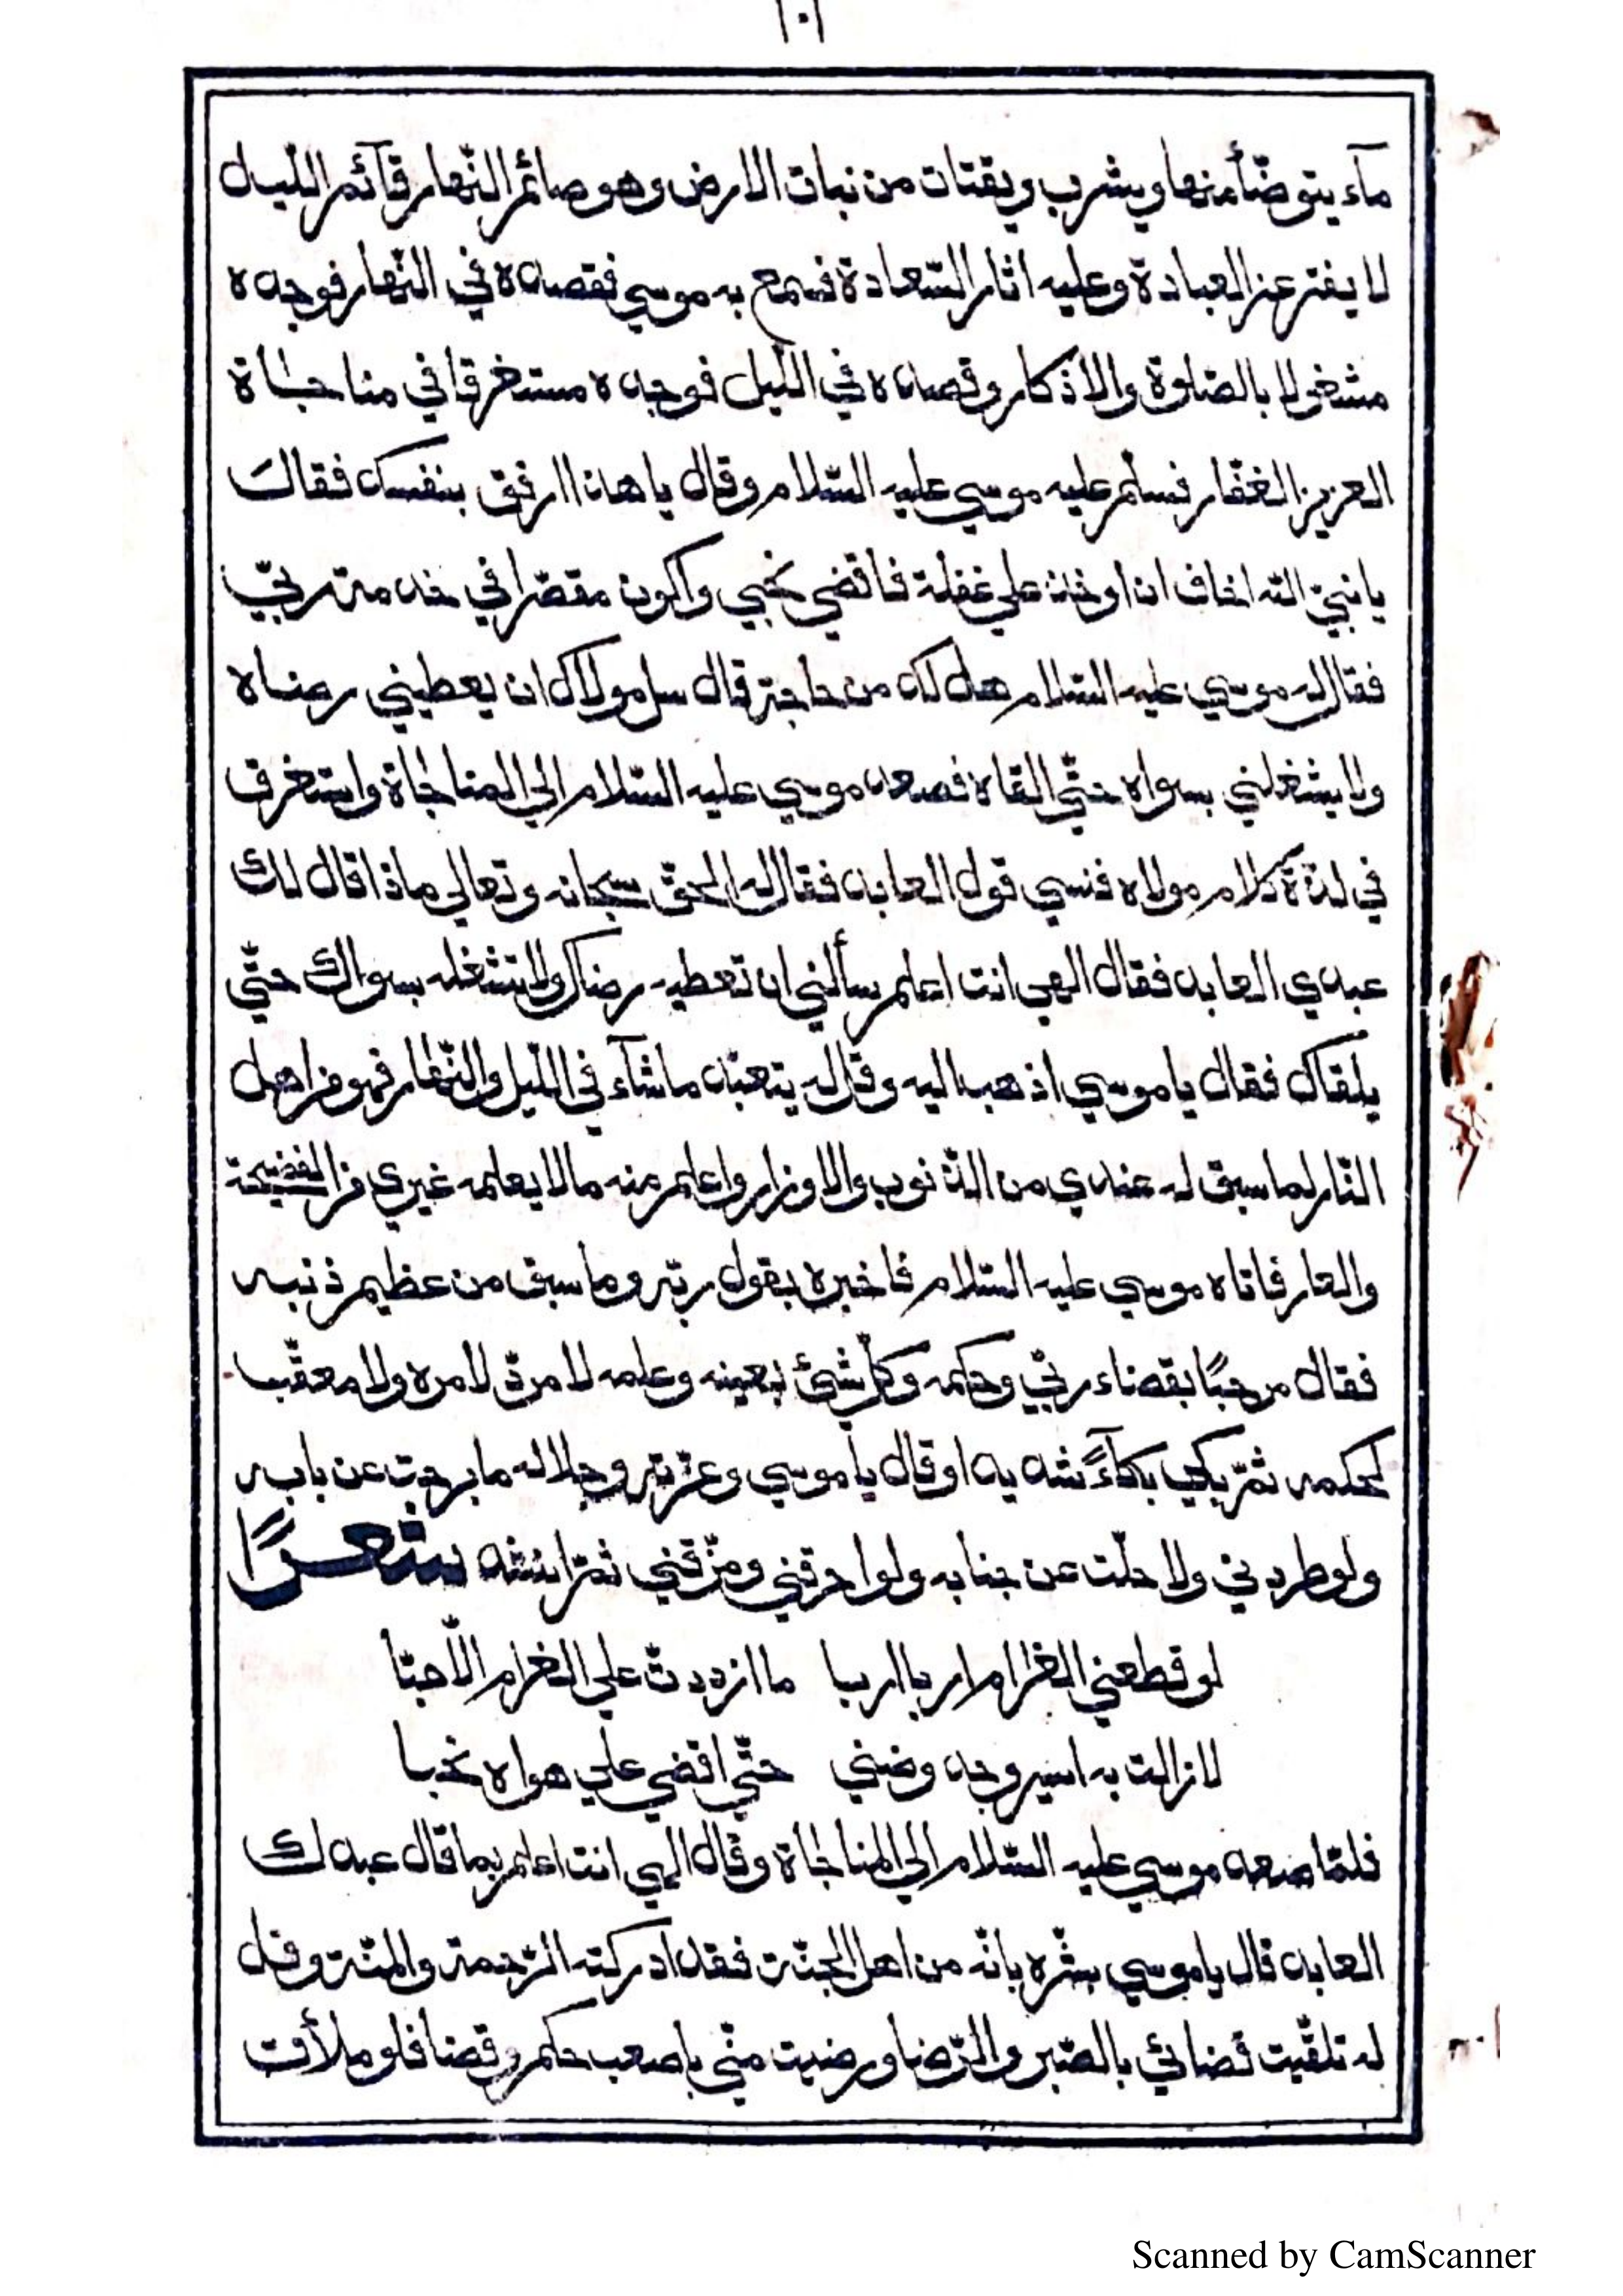 ١٠١
مآء يتوضّأ منها ويشرب ويقتات من نبات الارض وهو صائم النّهار قآئم اللّيل
لا يفتر عن العبادة وعليه اثار السّعادة فسمع به موسي فقصده في النّهار فوجده
مشغولا بالصّلوة والاذكار وقصده في اللّيل فوجده مستغرقا في مناجاة
العزيز الغفّار فسلّم عليه موسي عليه السّلام وقال يا هذا ارفق بنفسك فقال
يا نبيّ اللّه اخاف ان اوخذ علي غفلة فاقضي نحبي واكون مقصّرا في خدمة ربّي
فقال له موسي عليه السّلام هل لك من حاجة قال سل مولاك ان يعطيني رضاه
ولا يشغلني بسواه حتّي القاه فصعد موسي عليه السّلام الي المناجاة واستغرق
في لذّة كلام مولاه فنسي قول العابد فقال له الحقّ سبحانه وتعالي ماذا قال لك
عبدي العابد فقال الهي انت اعلم سألني ان تعطيه رضاك ولا تشغله بسواك حتّي
يلقاك فقال يا موسي اذهب اليه وقل له يتعبّد ما شآء في اللّيل والنّهار فهو من اهل
النّار لما سبق له عندي من الذّنوب والاوزار واعلم منه مالا يعلمه غيري من الفضيحة
والعار فاتاه موسي عليه السّلام فاخبره بقول ربّه وما سبق من عظيم ذنبه
فقال مرحبًا بقضاء ربّي وحكمه وكلّ شيئ بعينه وعلمه لا مردّ لامره ولا معقّب
لحكمه ثمّ بكي بكآءً شديدا وقال يا موسي وعزّته وجلاله ما برحت عن بابه
ولو طردني ولا حلّت عن جنابه ولو احرقني ومزّقني ثمّ انشد شعرًا
لو قطعني الغرام اربا اربا ما ازددت علي الغرام الّا حبّا
لا زالت به اسير وجد وضني حتّي اقضي علي هواه نحبا
فلمّا صعد موسي عليه السّلام الي المناجاة وقال الهي انت اعلم بما قال عبدك
العابد قال يا موسي بشّره بانّه من اهل الجنّة فقد ادركته الرّحمة والمنّة وقل
له تلقّيت قضائي بالصّبر والرّضا ورضيت منّي باصعب حكم وقضا فلو ملأت
Scanned by CamScanner